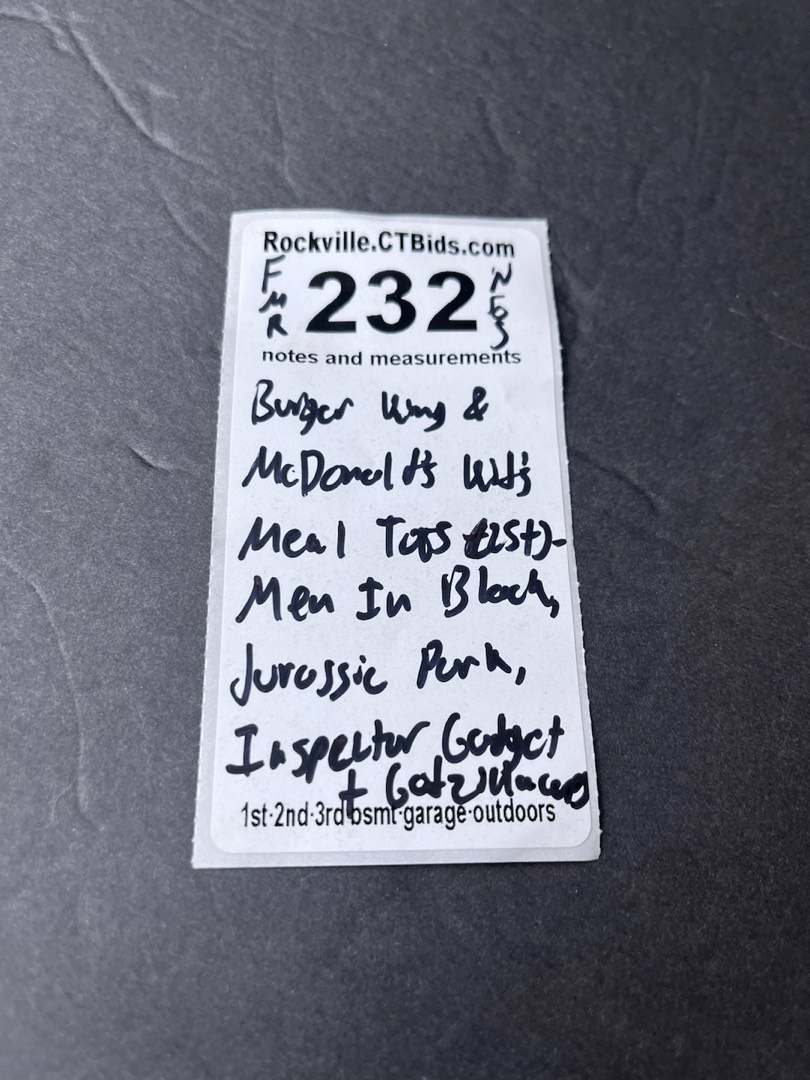 Rockville.CTBids.com
FMR 232
notes and measurements
Burger King &
McDonald's Kid's
Meal Toys
Men In Black,
Jurassic Park,
Inspector Gadget
+ Godzilla
1st·2nd·3rd bsmt·garage·outdoors